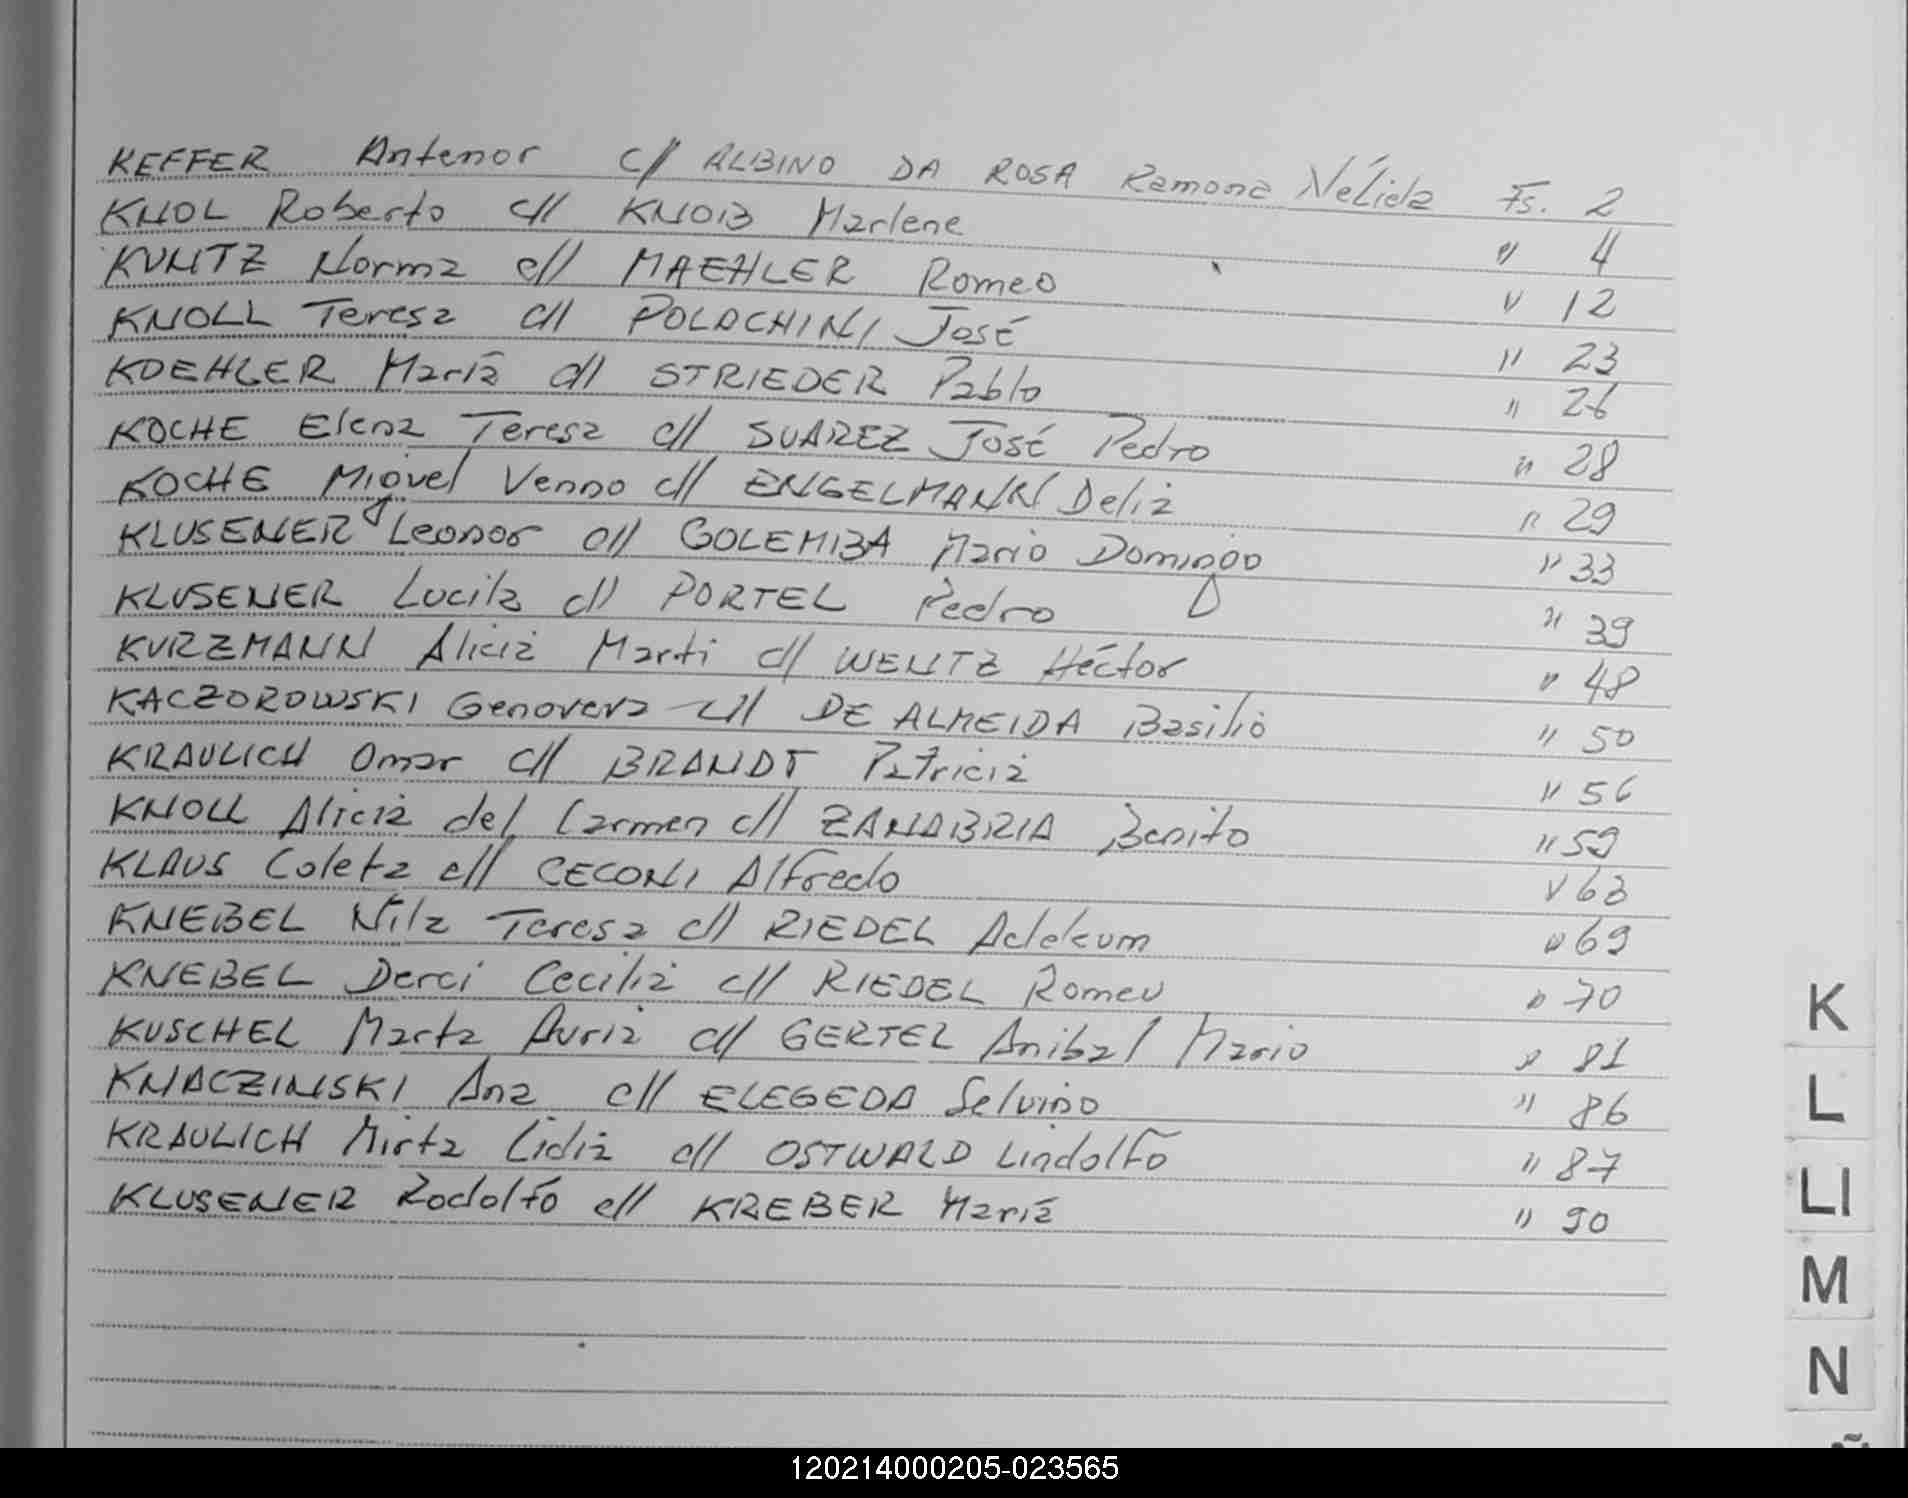 KEFFER Antenor c// ALBINO DA ROSA Ramona Nélida Fs. 2
KNOL Roberto c// KNOB Marlene " 4
KUNTZ Norma c// MAEHLER Romeo " 12
KNOLL Teresa c// POLACHINI José " 23
KOEHLER María c// STRIEDER Pablo " 26
KOCHE Elena Teresa c// SUAREZ José Pedro " 28
KOCHE Miguel Venno c// ENGELMANN Delia " 29
KLUSENER Leonor c// GOLEMBA Mario Domingo " 33
KLUSENER Lucila c// PORTEL Pedro " 39
KURZMANN Alicia Marti c// WENTZ Héctor " 48
KACZOROWSKI Genoveva c// DE ALMEIDA Basilio " 50
KRAULICH Omar c// BRANDT Patricia " 56
KNOLL Alicia del Carmen c// ZANABRIA Benito " 59
KLAUS Coleta c// CECONI Alfredo " 63
KNEBEL Nila Teresa c// RIEDEL " 69
KNEBEL Derci Cecilia c// RIEDEL Romeu " 70
KUSCHEL Marta Auria c// GERTEL Anibal Mario " 81
KNACZINSKI Ana c// ELEGEDA Selvino " 86
KRAULICH Mirta Lidia c// OSTWALD Lindolfo " 87
KLUSENER Rodolfo c// KREBER María " 90
K
L
Ll
M
N
Ñ
120214000205-023565